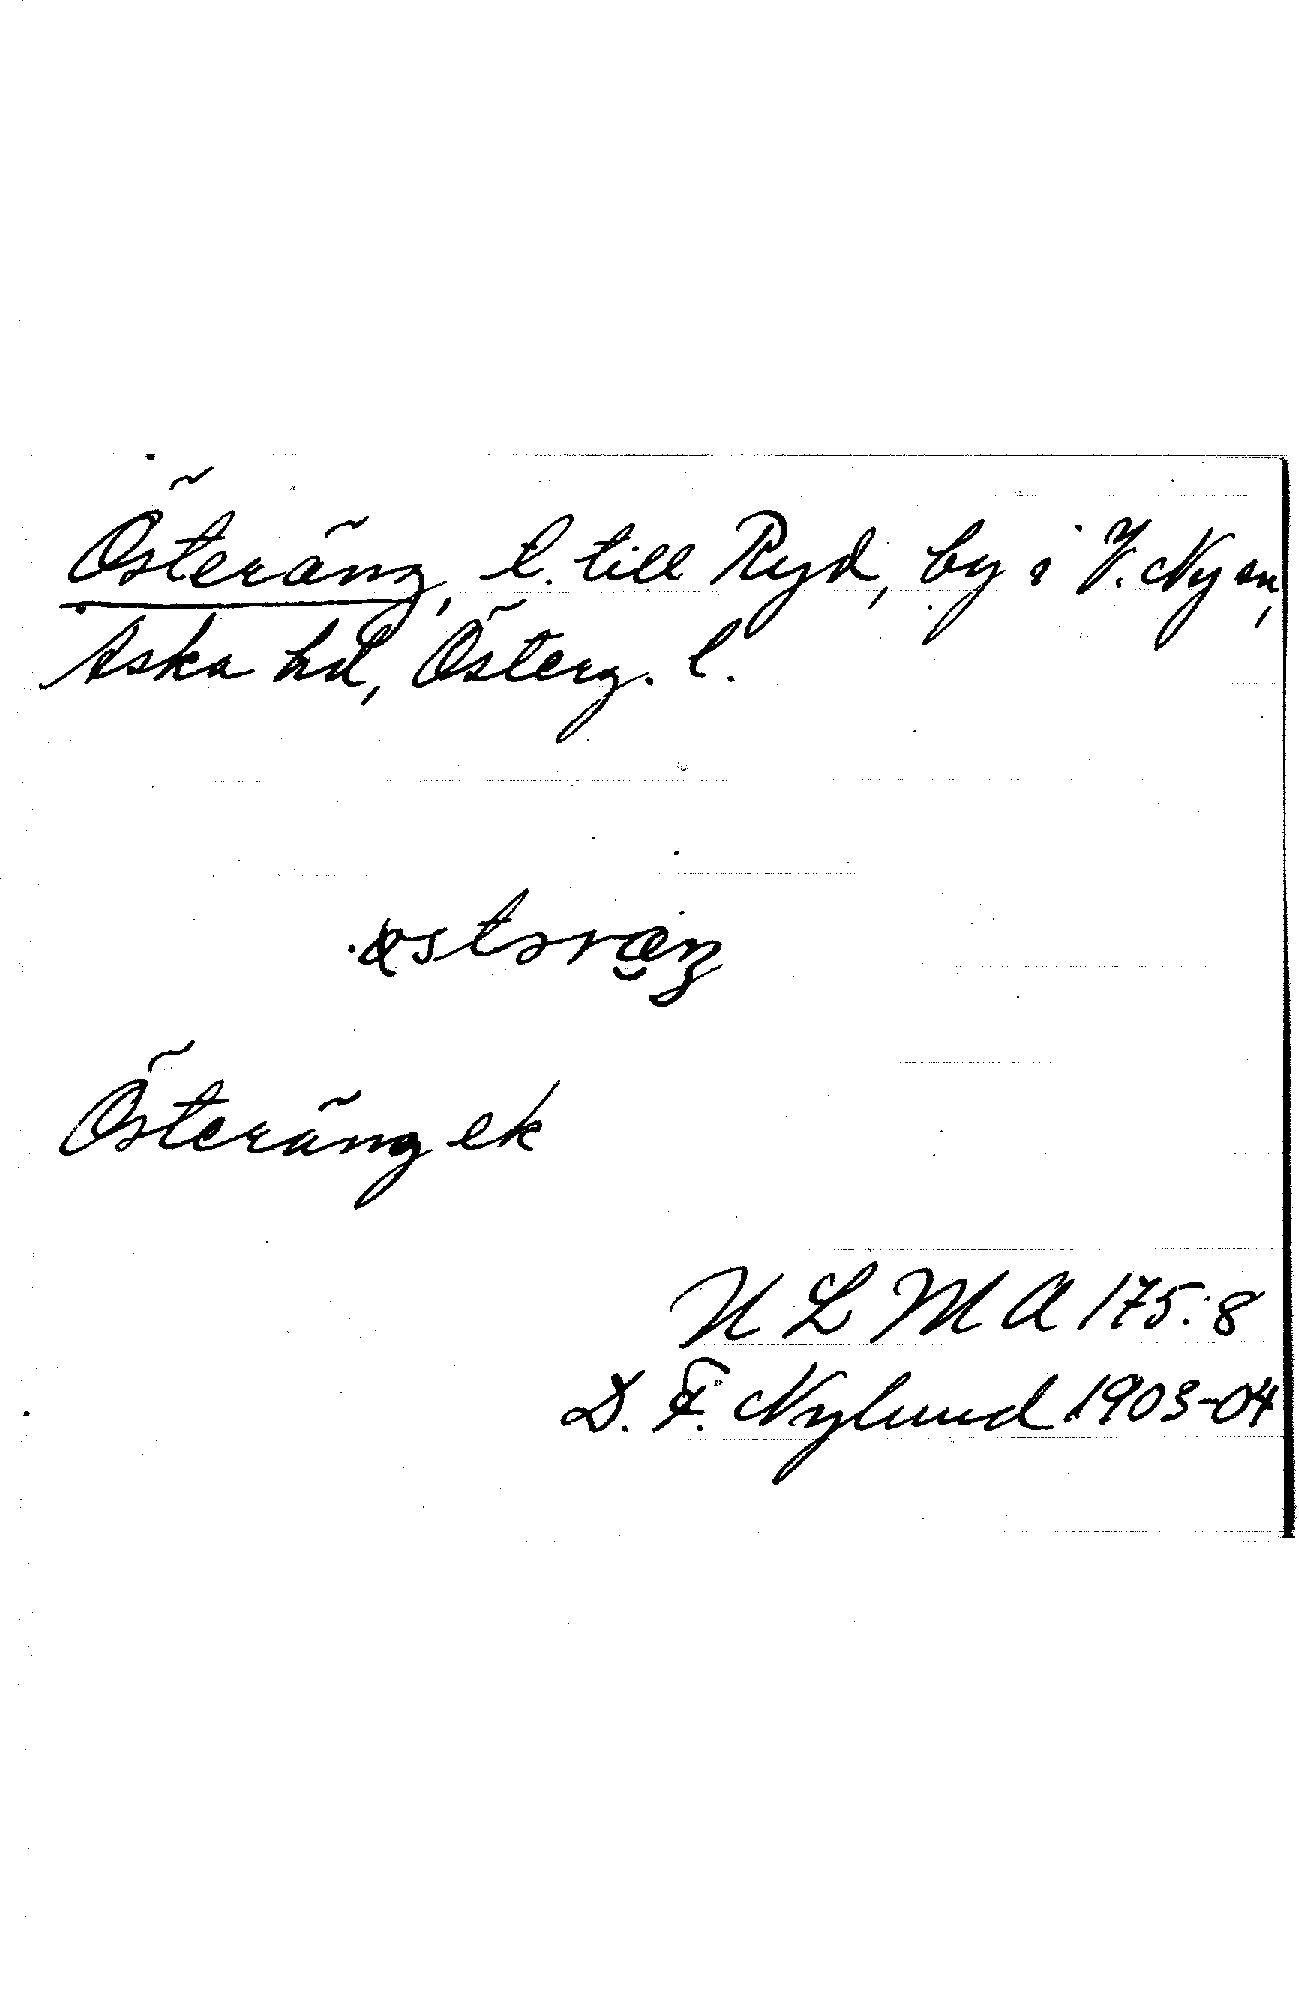 Österäng, t. till Ryd, by i V. Ny sn,
Aska hd, Österg. l.
Österäng ek
ULMA 175:8
D. F. Nylund 1903-04